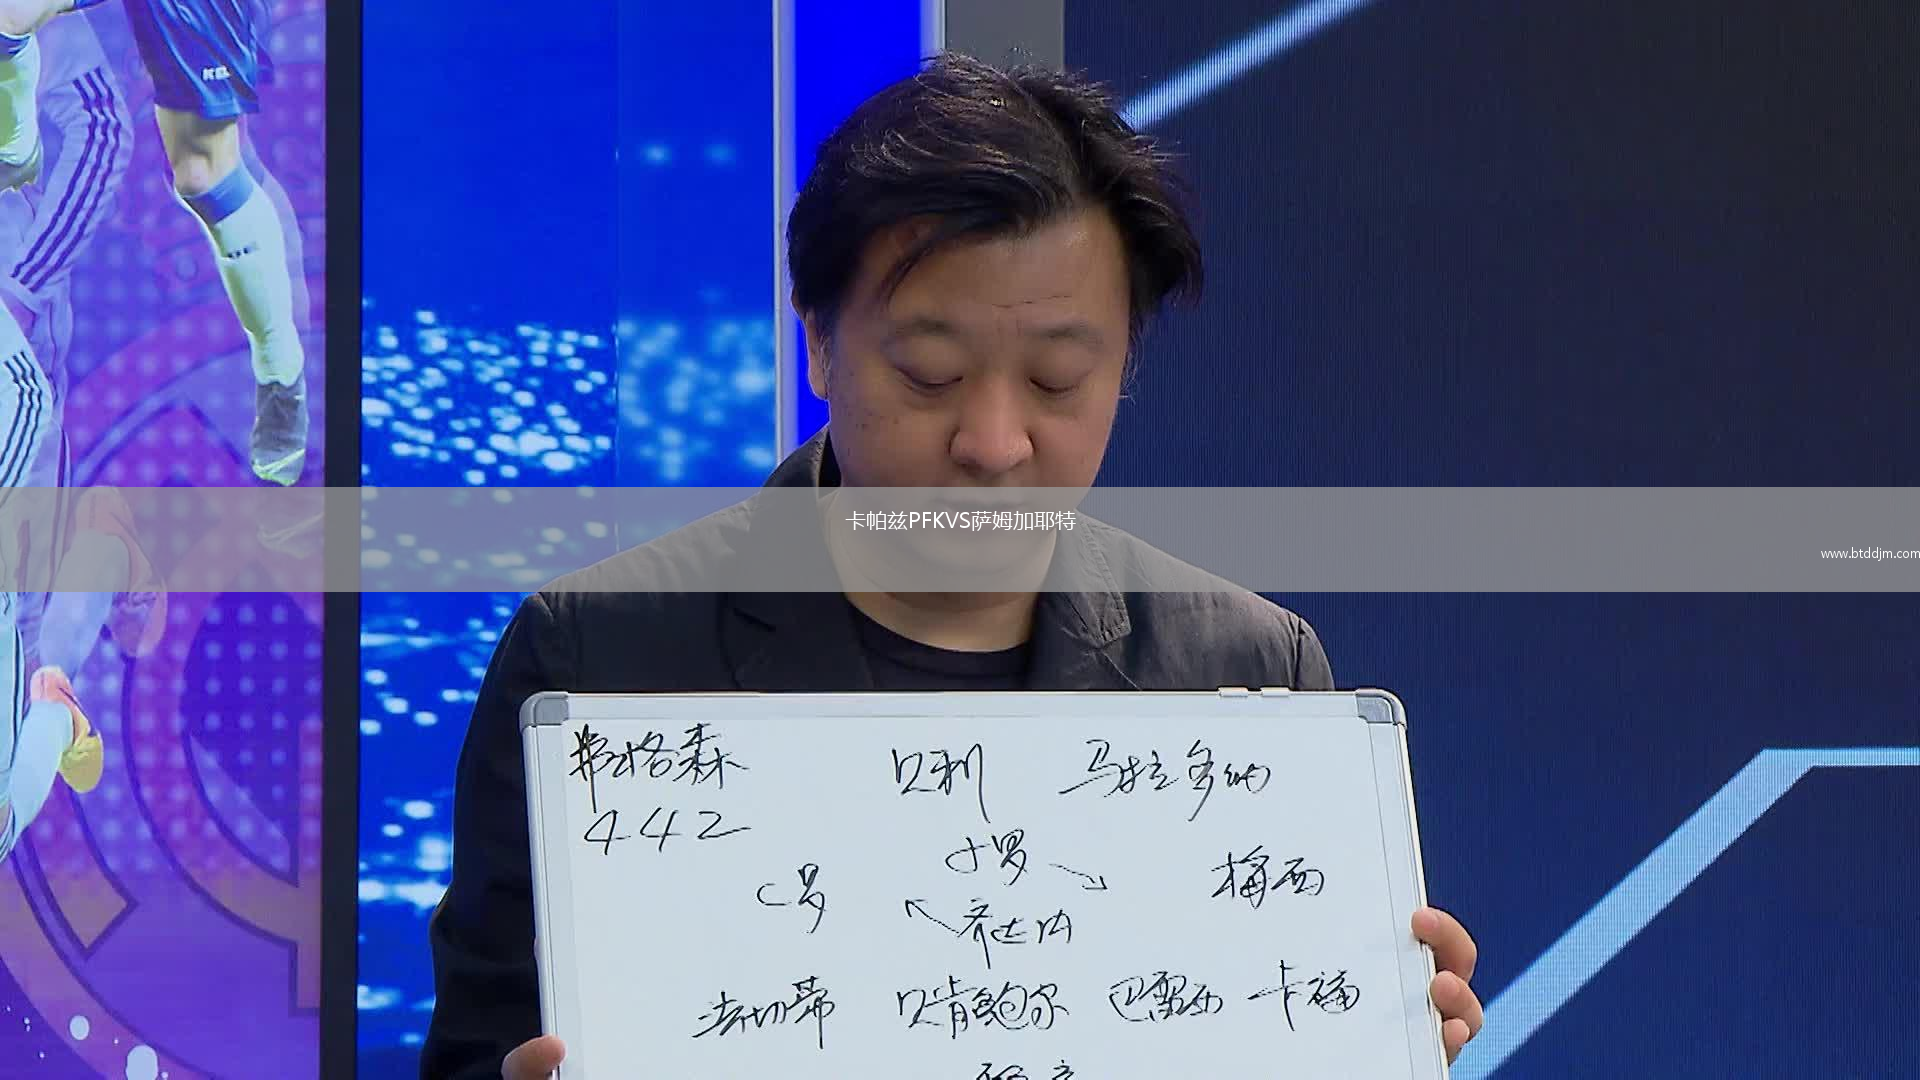 KEL
卡帕兹PFKVS萨姆加耶特
www.btddjm.com
弗格森 贝利 马拉多纳
442
小罗
C罗 梅西
齐达内
法切蒂 贝肯鲍尔 巴雷西 卡福